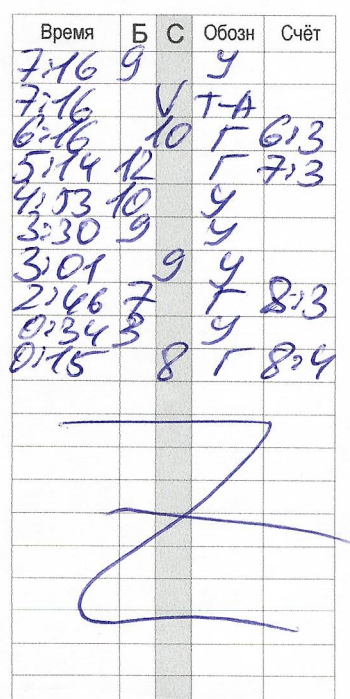 Время Б С Обозн Счёт
7:16 9 У
7:16 V Т-А
6:16 10 Г 6:3
5:14 12 Г 7:3
4:53 10 У
3:30 9 У
3:01 9 У
2:46 7 Г 8:3
0:34 3 У
0:15 8 Г 8:4